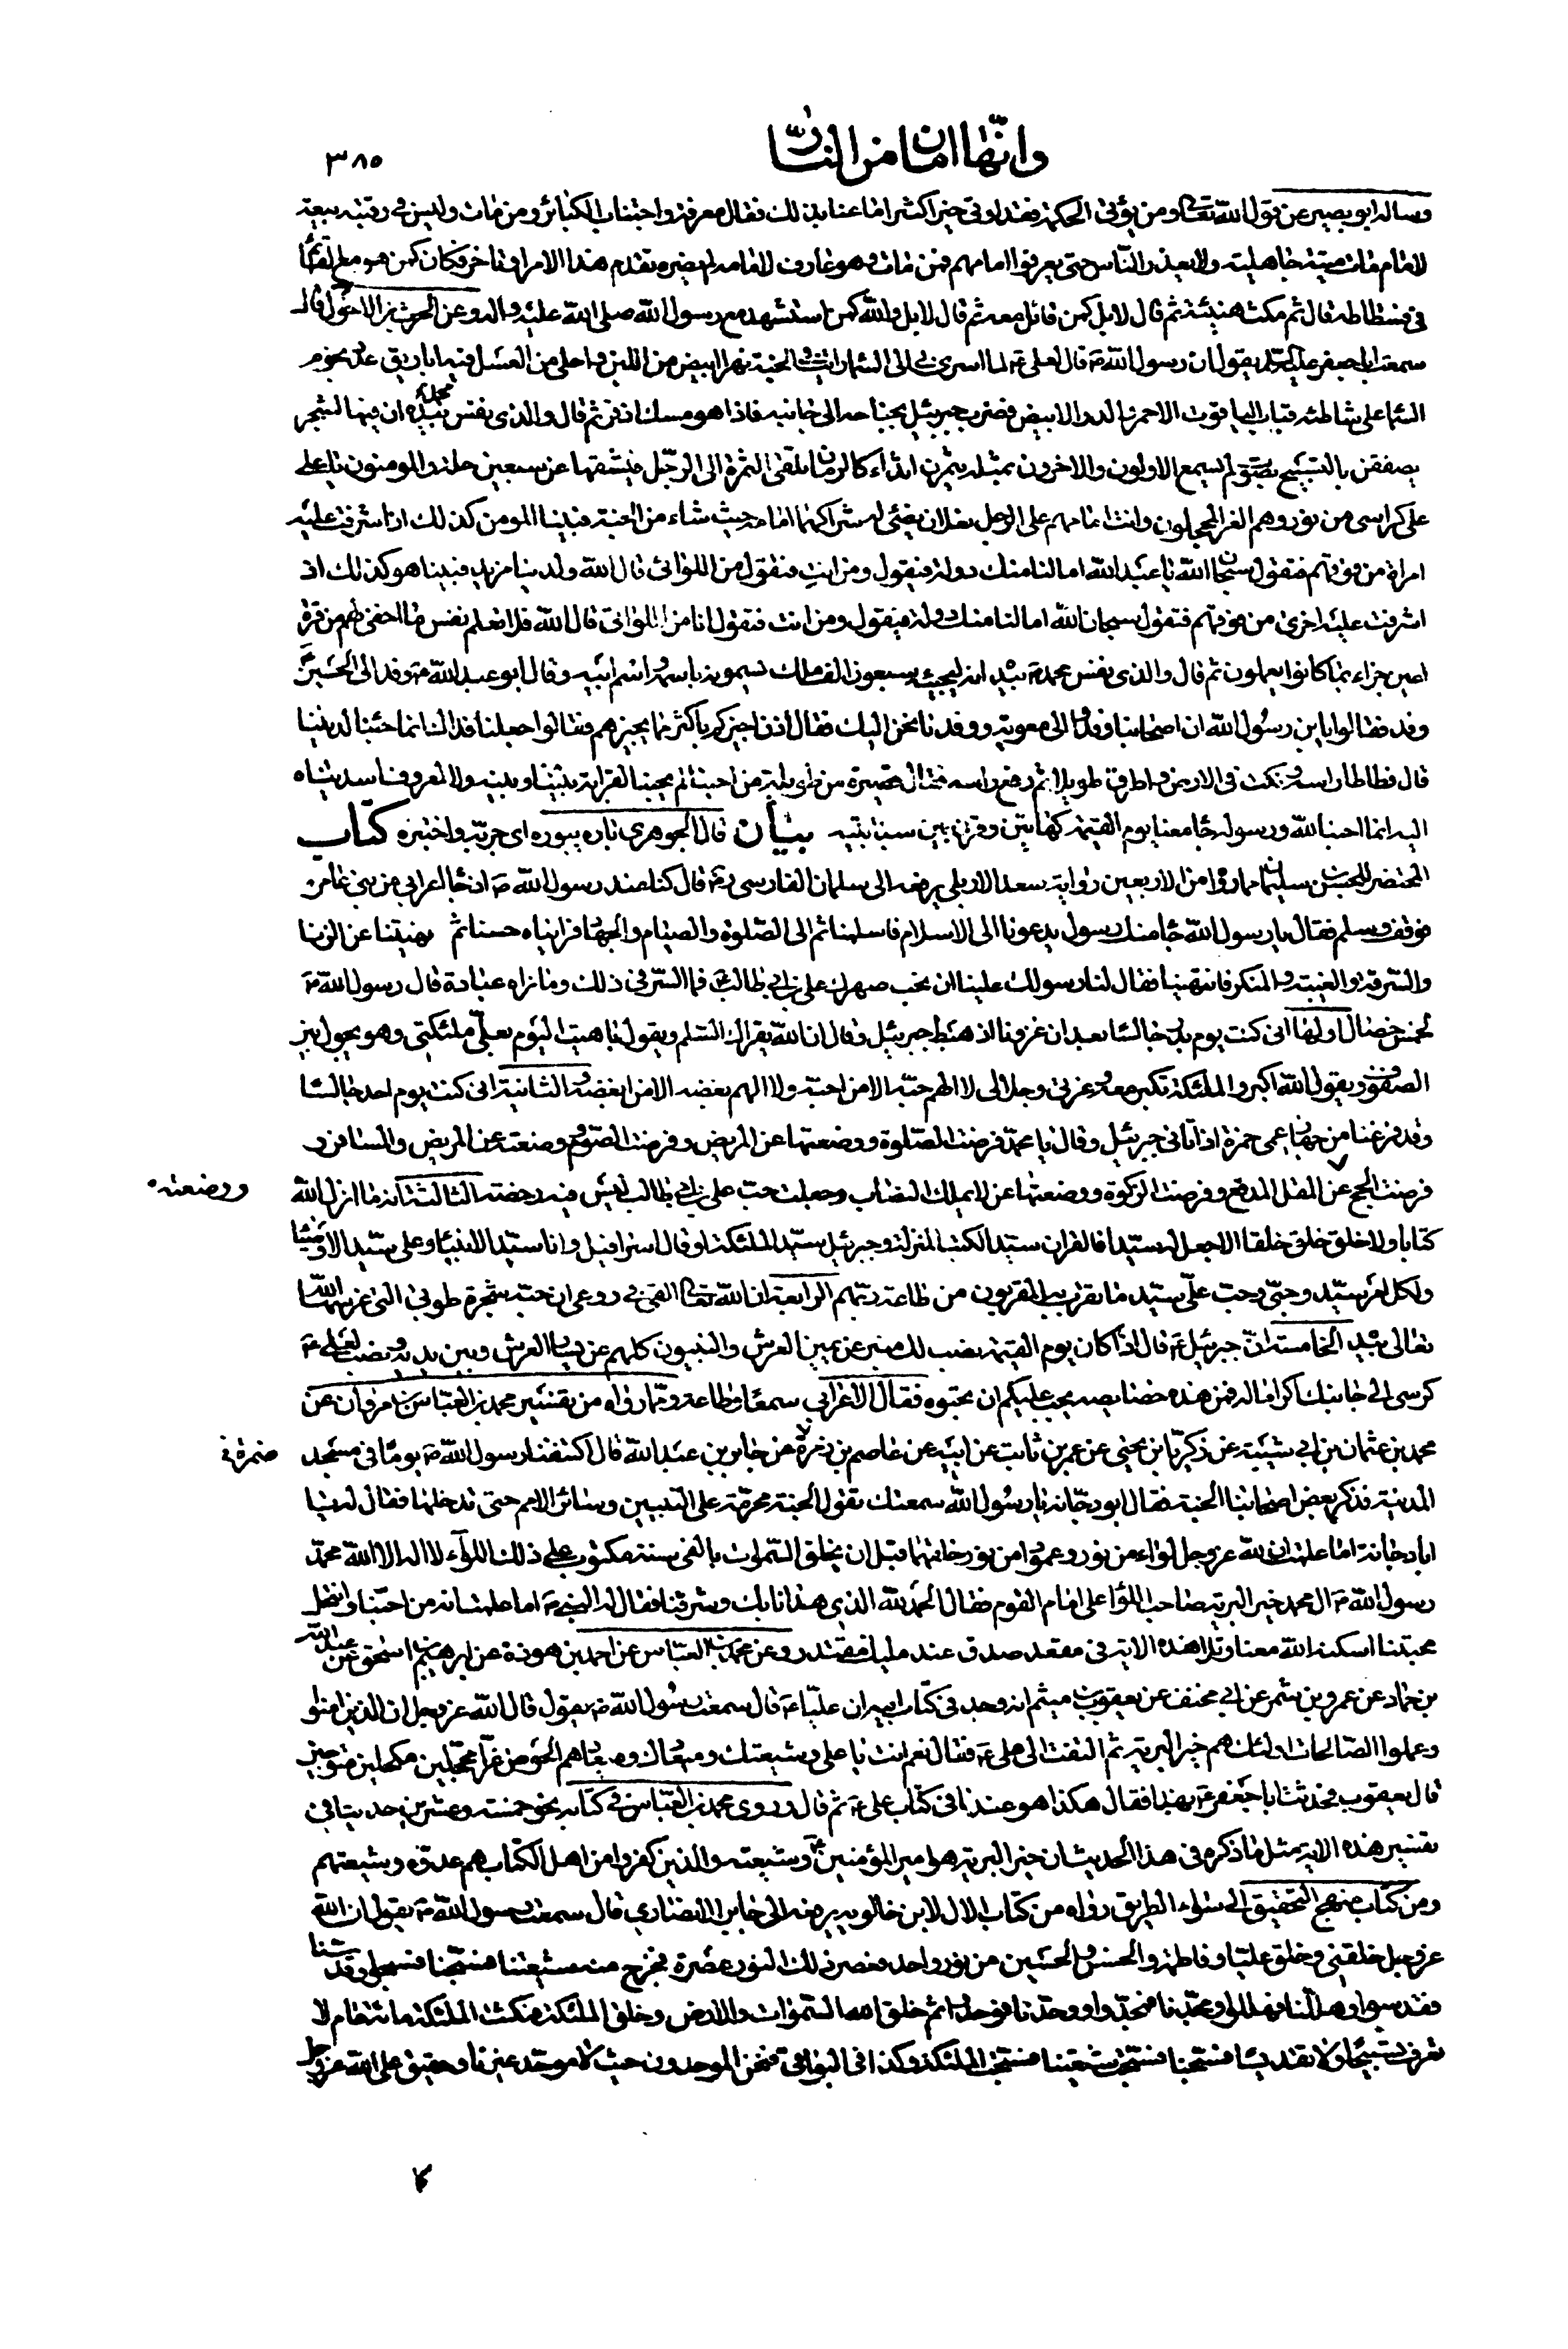 وانها امان من النار
٣٨٥
وساله ابو بصير عن قول الله تعالى ومن يؤتى الحكمة فقد اوتى خيرا كثيرا ما عنا بذلك فقال معرفة واجتناب الكبائر ومن مات وليس فى رقبته بيعة
لامام مات ميتة جاهلية ولا يعذر الناس حتى يعرفوا امامهم فمن مات وهو عارف لامامه لم يضره تقدم هذا الامر او تاخر فكان كمن هو مع القائم
فى فسطاطه قال ثم مكث هنيئة ثم قال لا بل كمن قاتل معه ثم قال لا بل والله كمن استشهد مع رسول الله صلى الله عليه واله وعن الحرث بن الاحول قال
سمعت ابا جعفر عليه السلم يقول ان رسول الله ص قال لعلى ع لما اسرى بى الى السماء رايت فى الجنة نهرا ابيض من اللبن واحلى من العسل فيه اباريق عدد نجوم
السماء على شاطئه قباب الياقوت الاحمر والدر الابيض فضرب جبرئيل بجناحه الى جانبه فاذا هو مسك اذفر ثم قال والذى نفس محمد بيده ان فيها لشجر
يصفقن بالتسبيح بصوت لم يسمع الاولون والاخرون بمثله يثمرن اثداء كالرمان يلقى الثمرة الى الرجل فيشقها عن سبعين حلة والمومنون يا على
على كراسى من نور وهم الغر المحجلون وانت امامهم على الرجل نعلان يضئى له شراكهما امامه حيث شاء من الجنة فبينا المومن كذلك اذ اشرفت عليه
امراة من فوقهم فتقول سبحان الله يا عبد الله اما لنا منك دولة فيقول ومن انت فتقول من اللواتى قال الله ولدينا مزيد فبينا هو كذلك اذ
اشرفت عليه اخرى من فوقهم فتقول سبحان الله اما لنا منك دولة فيقول ومن انت فتقول انا من اللواتى قال الله فلا تعلم نفس ما اخفى لهم من قرة
اعين جزاء بما كانوا يعملون ثم قال والذى نفس محمد ص بيده انه ليجيئه سبعون الف ملك يسمونه باسمه واسم ابيه وقال ابو عبد الله ع وفد الى الحسين ع
وفد فقالوا يا بن رسول الله ان اصحابنا وفدوا الى معوية ووفدنا نحن اليك فقال اذن اجيزكم باكثر مما يجيزهم فقالوا جعلنا فداك انما جئنا لديننا
قال فطاطا راسه ونكت فى الارض واطرق طويلا ثم رفع راسه فقال قصيرة من طويلة من احبنا لم يحبنا لقرابة بيننا وبينه ولا لمعروف اسديناه
اليه انما احبنا لله ورسوله جاء معنا يوم القيمة كهاتين وقرن بين سبابتيه بيان قال الجوهرى باره يبوره اى جربه واختبره كتاب
المحتضر للحسن بن سليمان مما رواه من الاربعين رواية سعد الاربلى يرفعه الى سلمان الفارسى ره قال كنا عند رسول الله ص اذ جاء اعرابى من بنى عامر
فوقف وسلم فقال يا رسول الله جاء منك رسول يدعونا الى الاسلام فاسلمنا ثم الى الصلوة والصيام والجهاد فرايناه حسنا ثم نهيتنا عن الزنا
والسرقة والغيبة والمنكر فانتهينا فقال لنا رسولك علينا ان نحب صهرك على بن ابى طالب ع فما السر فى ذلك وما نراه عبادة قال رسول الله ص
لخمس خصال اولها انى كنت يوم بدر جالسا بعد ان غزونا اذ هبط جبرئيل وقال ان الله يقرئك السلم ويقول باهيت اليوم بعلى ملئكتى وهو يجول بين
الصفوف ويقول الله اكبر والملئكة تكبر معه وعزتى وجلالى لا الهم حبه الا من احبه ولا الهم بغضه الا من ابغضه والثانية انى كنت يوم احد جالسا
وقد فرغنا من جهاز عمى حمزة اذ اتانى جبرئيل وقال يا محمد فرضت الصلوة ووضعتها عن المريض وفرضت الصوم وضعته عن المريض والمسافر و
فرضت الحج عن المقل المدقع وفرضت الزكوة ووضعتها عن لا يملك النصاب وجعلت حب على بن ابى طالب ليس فيه رخصة الثالثة انه ما انزل الله
ووضعته
كتابا ولا خلق خلقا الا جعل له سيدا فالقران سيد الكتب المنزلة وجبرئيل سيد الملئكة او قال اسرافيل وانا سيد الانبياء وعلى سيد الاوصياء
ولكل امر سيد وحبى وحب على سيد ما تقرب به المقربون من طاعة ربهم الرابعة ان الله تعالى القى فى روعى ان حبه شجرة طوبى التى غرسها الله
تعالى بيده الخامسة ان جبرئيل ع قال اذا كان يوم القيمة نصب لك منبر عن يمين العرش والنبيون كلهم عن يسار العرش وبين يديه ونصب لعلى ع
كرسى الى جانبك اكراما له فمن هذه خصائصه يجب عليكم ان تحبوه فقال الاعرابى سمعا وطاعة ومما رواه من تفسير محمد بن العباس بن مروان عن
محمد بن عثمان بن ابى شيبة عن زكريا بن يحيى عن عمر بن ثابت عن ابيه عن عاصم بن ضمرة عن جابر بن عبد الله قال اكتنفنا رسول الله ص يوما فى مسجد
ضمرة فى
المدينة فذكر بعض اصحابنا الجنة فقال ابو دجانة يا رسول الله سمعتك تقول الجنة محرمة على النبيين وسائر الامم حتى تدخلها فقال له يا
ابا دجانة اما علمت ان لله عز وجل لواء من نور وعمودا من نور خلقهما قبل ان يخلق السموات بالفى سنة مكتوب على ذلك اللواء لا اله الا الله محمد
رسول الله ص ال محمد خير البرية صاحب اللواء على امام القوم فقال الحمد لله الذى هدانا بك وشرفنا فقال له النبى ص اما علمت انه من احبنا وانتحل
محبتنا اسكنه الله معنا وتلا هذه الاية فى مقعد صدق عند مليك مقتدر وعن محمد بن العباس عن احمد بن هوذة عن ابرهيم بن اسحق عن عبد الله
بن حماد عن عمرو بن شمر عن ابى مخنف عن يعقوب بن ميثم انه وجد فى كتاب ابيه ان عليا ع قال سمعت رسول الله ص يقول قال الله عز وجل ان الذين امنوا
وعملوا الصالحات اولئك هم خير البرية ثم التفت الى على ع فقال نعم انت يا على وشيعتك وميعادك وميعادهم الحوض غرا محجلين مكحلين متوجين
قال يعقوب فحدثت ابا جعفر ع بهذا فقال هكذا هو عندنا فى كتاب على ع ثم قال وروى محمد بن العباس فى كتابه نحو خمسة وعشرين حديثا فى
تفسير هذه الاية بمثل ما ذكره فى هذا الحديث ان خير البرية هو امير المؤمنين ع وشيعته والذين كفروا من اهل الكتاب هم عدوه وشيعتهم
ومن كتاب منهج التحقيق الى سواء الطريق رواه من كتاب الال لابن خالويه يرفعه الى جابر الانصارى قال سمعت رسول الله ص يقول ان الله
عز وجل خلقنى وخلق عليا وفاطمة والحسن والحسين من نور واحد فعصر ذلك النور عصرة فخرج منه شيعتنا فسبحنا فسبحوا وقدسنا
فقدسوا وهللنا فهللوا ومجدنا فمجدوا ووحدنا فوحدوا ثم خلق الله السموات والارض وخلق الملئكة فمكثت الملئكة مائة عام لا
تعرف تسبيحا ولا تقديسا فسبحنا فسبحت شيعتنا فسبحت الملئكة وكذا فى البواقى فنحن الموحدون حيث لا موحد غيرنا وحقيق على الله عز وجل
كا